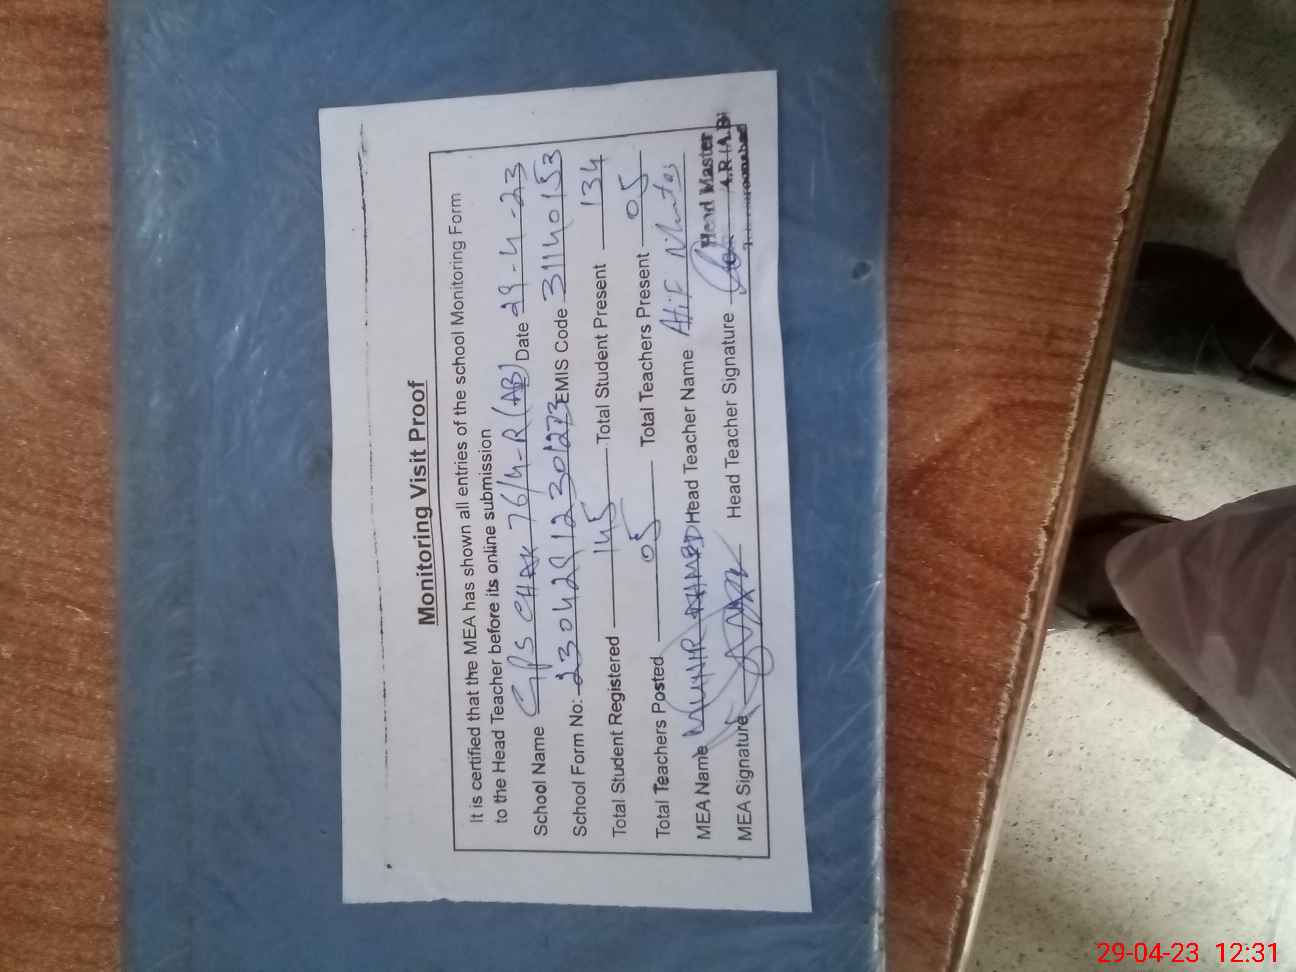 Monitoring Visit Proof
It is certified that the MEA has shown all entries of the school Monitoring Form
to the Head Teacher before its online submission
School Name GPS CHAK 76/4-R (AB) Date 29-4-23
School Form No: 23042912301273 EMIS Code 31140153
Total Student Registered 145 Total Student Present 134
Total Teachers Posted 05 Total Teachers Present 05
MEA Name MUNIR AHMED Head Teacher Name Atif
MEA Signature Head Teacher Signature
Head Master
4.R (A.B)
29-04-23 12:31